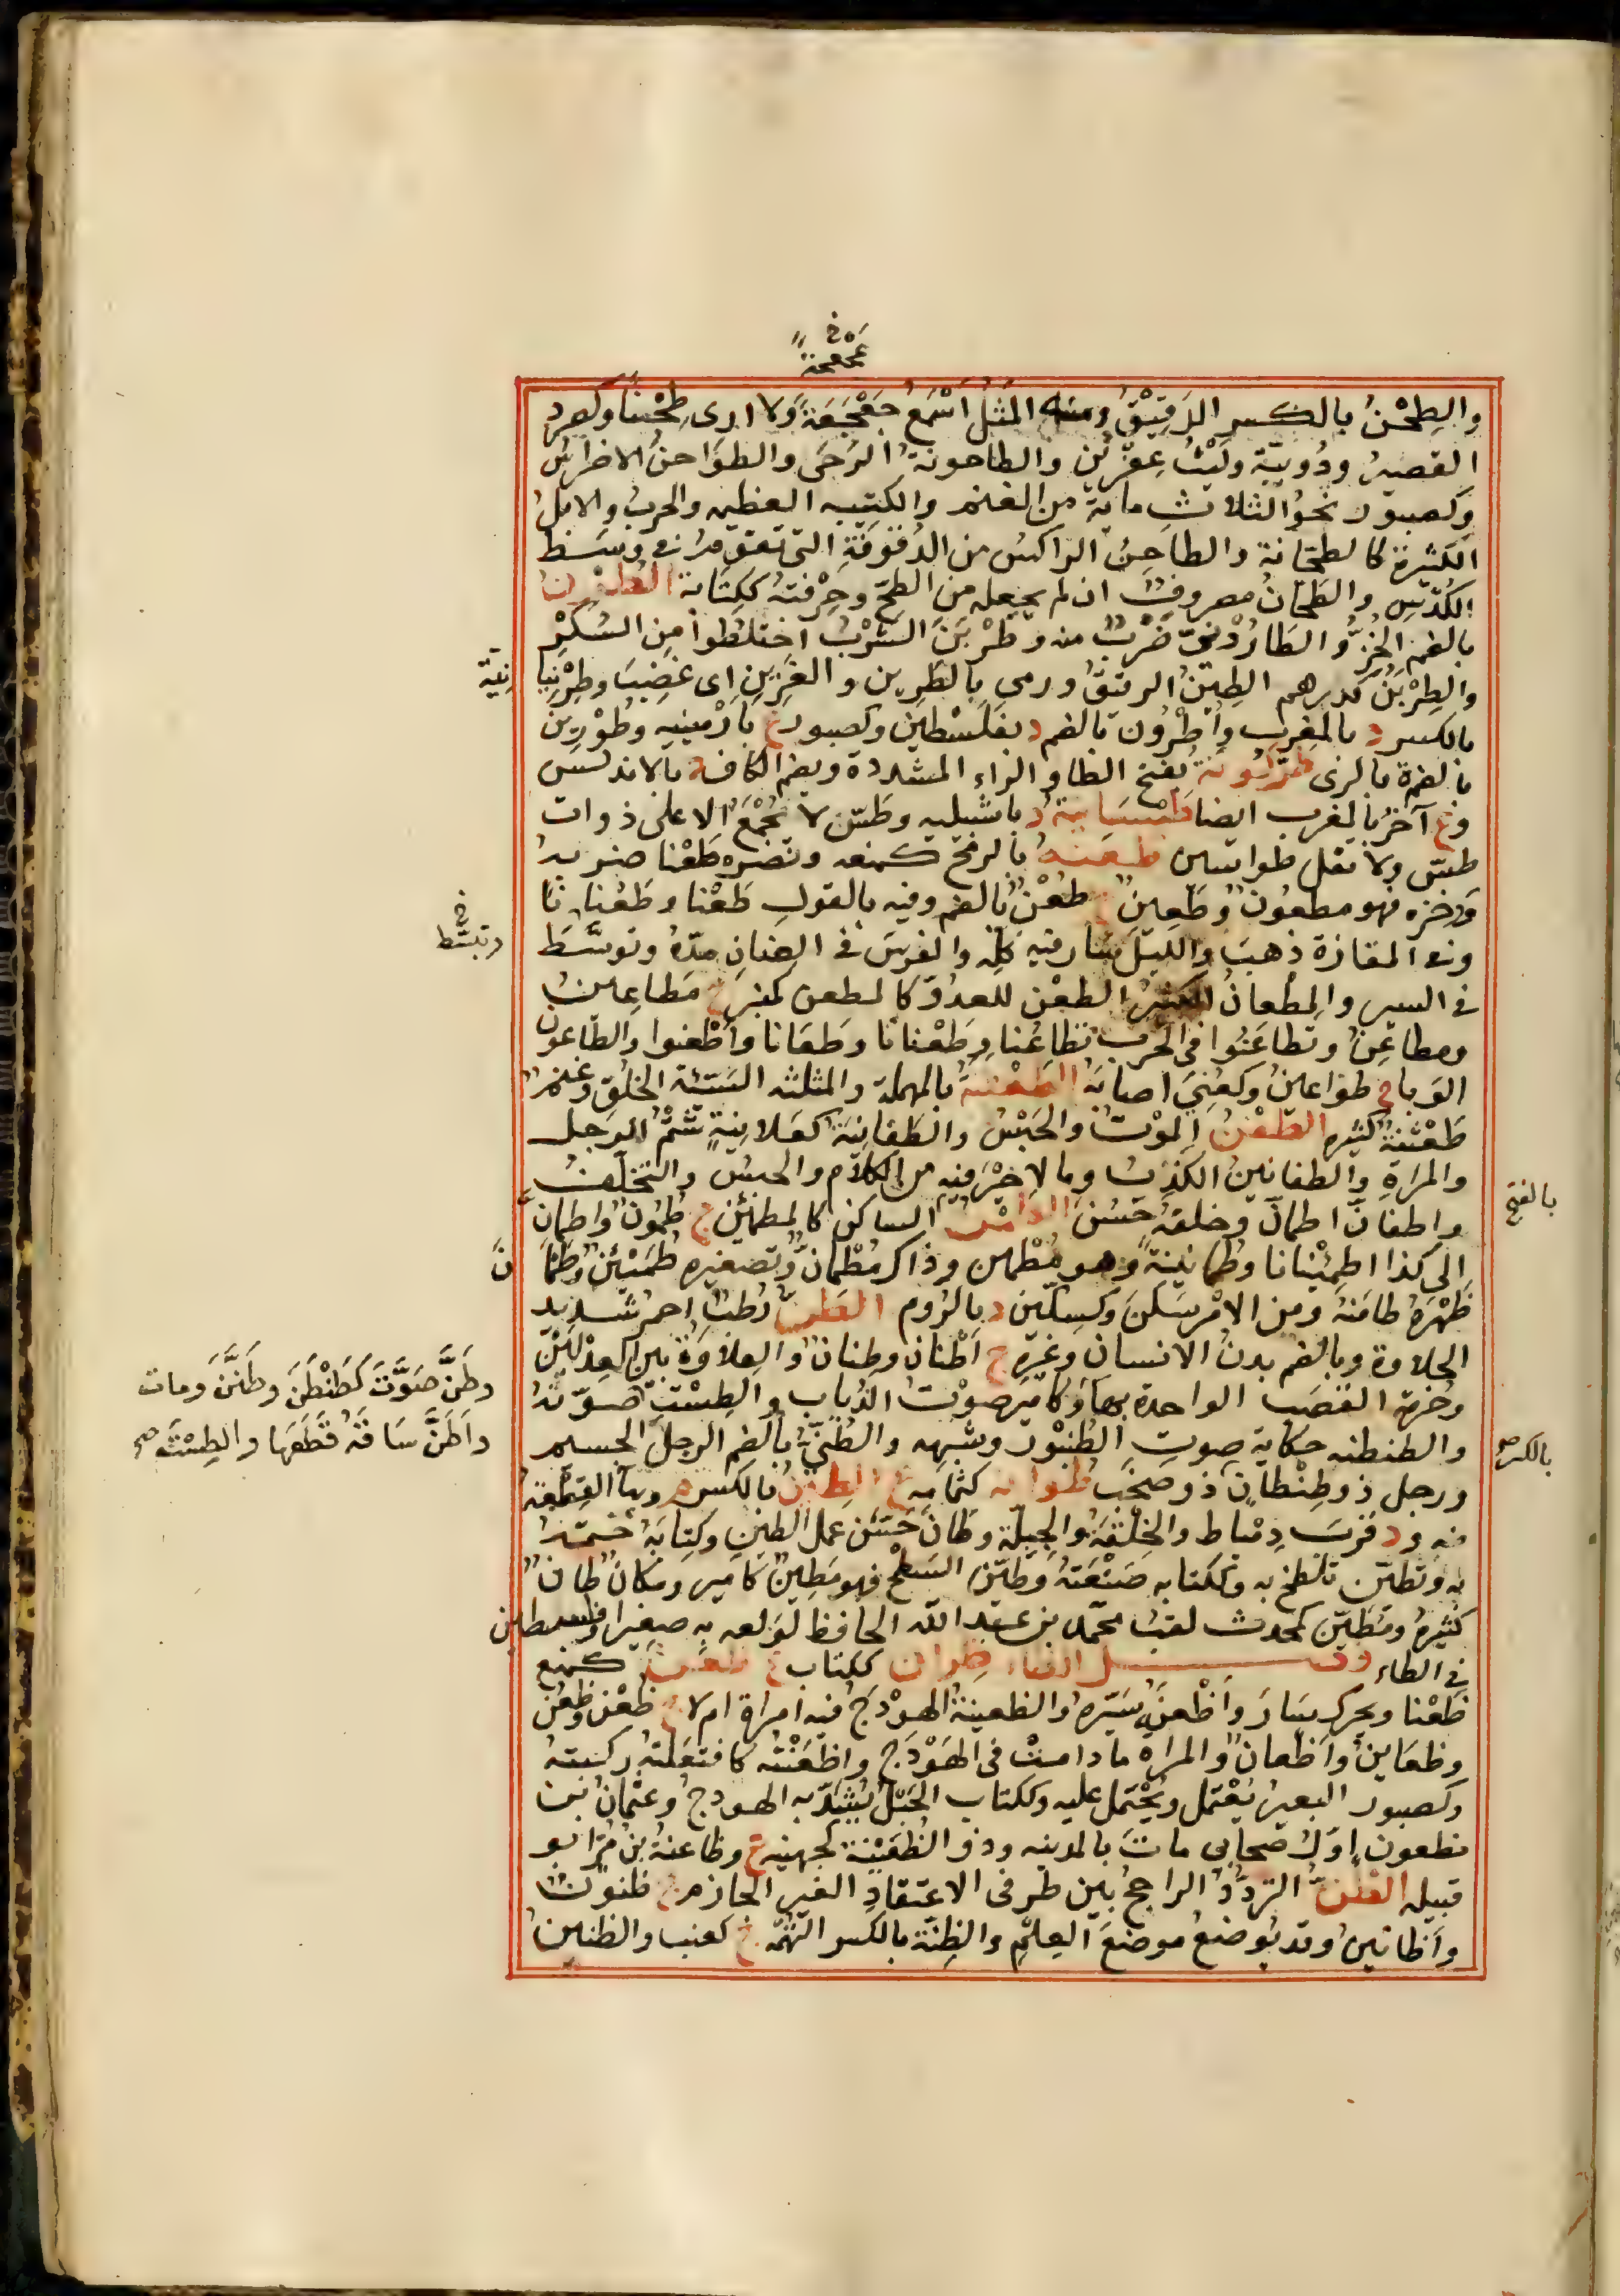 عجعجة خ
والطِحْنُ بالكسر الدَقِيْقُ ومنه المَثَلُ اَسْمَعُ جَعْجَعَةً ولا ارى طِحْنًا وكصرد
القصيرُ ودُوَيبّة ولَيْثُ عِفِرّينَ والطاحونة الرَحَى والطوَاحنُ الاضراسُ
وكصبور نحوُ الثلاث ماية من الغنم والكتيبه العظيمه والحربُ والابلُ
الكثيرة كالطحّانة والطاحِنُ الراكسُ من الدَقوقَةِ التى تقوم فى وسَط
الكُدْسِ والطَحّانُ مصروفٌ ان لم يجعله من الطحّ وحِرْفتهُ ككِتَابة الطُرْنُ
بالضم الخَزُّ والطارُوْنىّ ضَرْبٌ منه وطَرْيَنَ الشَرْبُ اختلطوا مِن السُكْرِ
والطِرْيَنُ كدرهم الطِينُ الرقيقُ ورمى بالطَرِين والغَرِينِ اى غضِبَ وطِرْنِيا
نِيَة
بالكسر د بالمغرب واُطْرُون بالضم د بفلسْطينَ وكصبور ع بارْمينيه وطُوْرِينُ
بالضم ة بالرى طَرّكُونةُ بفتح الطا والراء المشددة وضم الكاف د بالاندلس
وع آخرُ بالمغرب ايضا طَيْسَانِيةُ د باشبيليه وطسّ لا تُجْمَعُ الا على ذوات
طسّ ولا تقل طواسين طعنهُ بالرمح كمنعه ونصره طَعْنا ضربه
ووخزه فهو مطعُونٌ وطَعِينٌ ج طُعْنٌ بالضم وفيه بالقولِ طَعْنا وطَعَنانا
وفى المفازة ذهبَ والليلَ سار فيه كلّه والفرسَ فى العِنانِ مدّهُ وتوسَّطَ
وتبسّط خ
فى السير والمِطْعانُ الكثيرُ الطعْن للعدُوّ كالمِطعن كمنبر ج مَطاعِين
ومطاعِنُ وتطاعَنُوا فى الحرب تطاعُنا وطَعَنانا وطِعَانا واطّعنوا والطاعون
الوَبا ج طواعينُ وكعُنِيَ اصابَهُ الطَعْثنةُ بالمهملة والمثلثه السَيّئة الخلُق وغنمٌ
طَعْثنةٌ كثيره الطَفْنُ الموْتُ والحَبْسُ والطَفانِيَةُ كعَلانِيةٍ شتْمُ الرجل
والمَراةِ والطفانينُ الكَذِبُ وما لا خيْرَ فيه من الكلام والحبس والتخلّفُ
بالفتح
واطفانّ اطمانّ وخلقهُ حَسُنَ الطامِنُ الساكن كالمطمئن ج طُمُون واطمان
الى كذا اطمِئْنانا وطُمانِينةً وهو مُطْمئن وذاكر مُطْمانٌّ وتصغيره طُمَيْئنٌ وطَمانَ
ظهرَهُ طامَنهُ ومن الامْر سَكنَ وكسِكّينٍ د بالرُوم الطَنُّ رُطبٌ احمر شديد
الحلاوة وبالضم بدنُ الانسان وغيرِه ج اَطْنان وطِنانٌ والعِلاوَةُ بين العِدْلَيْن
وطَنَّ صَوَّتَ كَطَنْطَنَ وطَنَّنَ ومات
وحُزمة القصَب الواحدة بهاءٍ وكامير صوْتُ الذُباب والطِسْت صَوّتهُ
واَطَنَّ سَاقهُ قطَعَها والطِسْتَ صح
والطنطنه حكاية صوتِ الطُنبُور وشبهِه والطُنِّىُّ بالضم الرجلُ الجسيم
بالكسر صح
ورجل ذو طِنْطانٍ ذو صخَبٍ طُوانه كثُمامه ع الطِينُ بالكسر م وبهاءٍ القِطْعة
منه ود قربَ دِمْياط والخِلْقةُ والجِبِلّة وطانَ حسّنَ عمَل الطينِ وكِتابَهُ ختمهُ
به وتطيّن تلطّخ به وككتابه صَنْعَتهُ وطيّن السَطْحَ فهو مَطِينٌ كامير ومكانٌ طانٌ
كثيرهُ ومُطيّن كمحدث لقبُ محمّد بن عبد الله الحافظ لوَلَعِه به صغيرا وفلسطين
فى الطاء فصل الظاء ظِران ككتاب ع ظعَن كمنع
ظَعْنا ويحرك سَارَ واَظْعَنَهُ سَيّره والظعينةُ الهوْدَجُ فيه امراة ام لا ج ظُعْن وظُعُن
وظعَاينُ واَظعانٌ والمراه ما دامتْ فى الهَوْدَجِ واظّعَنتْه كافتعَلتهُ ركبته
وكصبور البعيرُ يُعْتمل ويُحْتمل عليه وككتاب الحَبْلُ يُشَدّ به الهودجُ وعثمانُ بنُ
مظعون اوّلُ صحابى ماتَ بالمدينه وذو الظُعَيْنة كجهينه ع وظاعنةُ بنُ مُرّ ابو
قبيله الظنُّ الترَدُّدُ الراجحُ بين طرفى الاعتقادِ الغير الجازم ج ظنونٌ
واَظانينُ وقد يُوضعُ موضعَ العِلمِ والظِنّة بالكسر التُهَمة ج كعنب والظنينُ